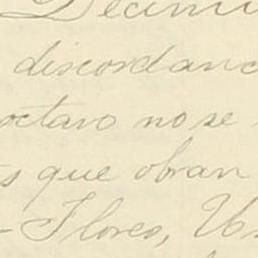 Decimu
discordanc
octavo no se
s que obran
Flores, Us